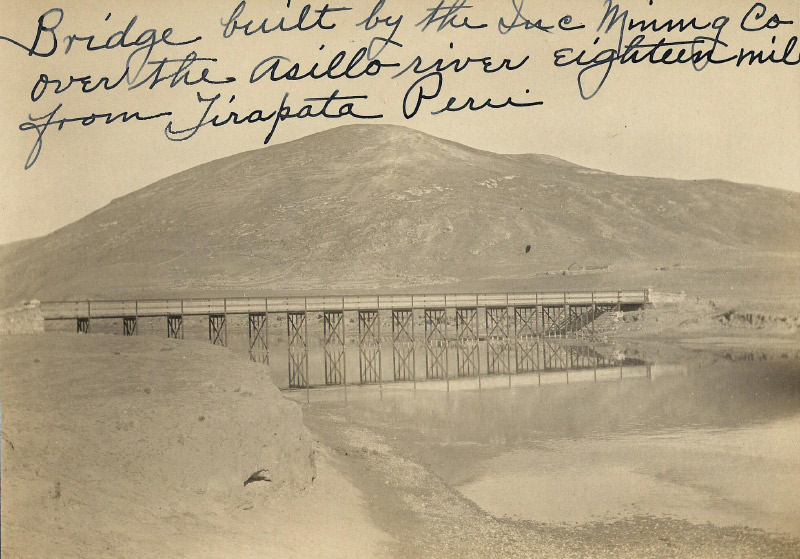 Bridge built by the Inc Mining Co
over the Asillo river eighteen mil
from Tirapata Peru